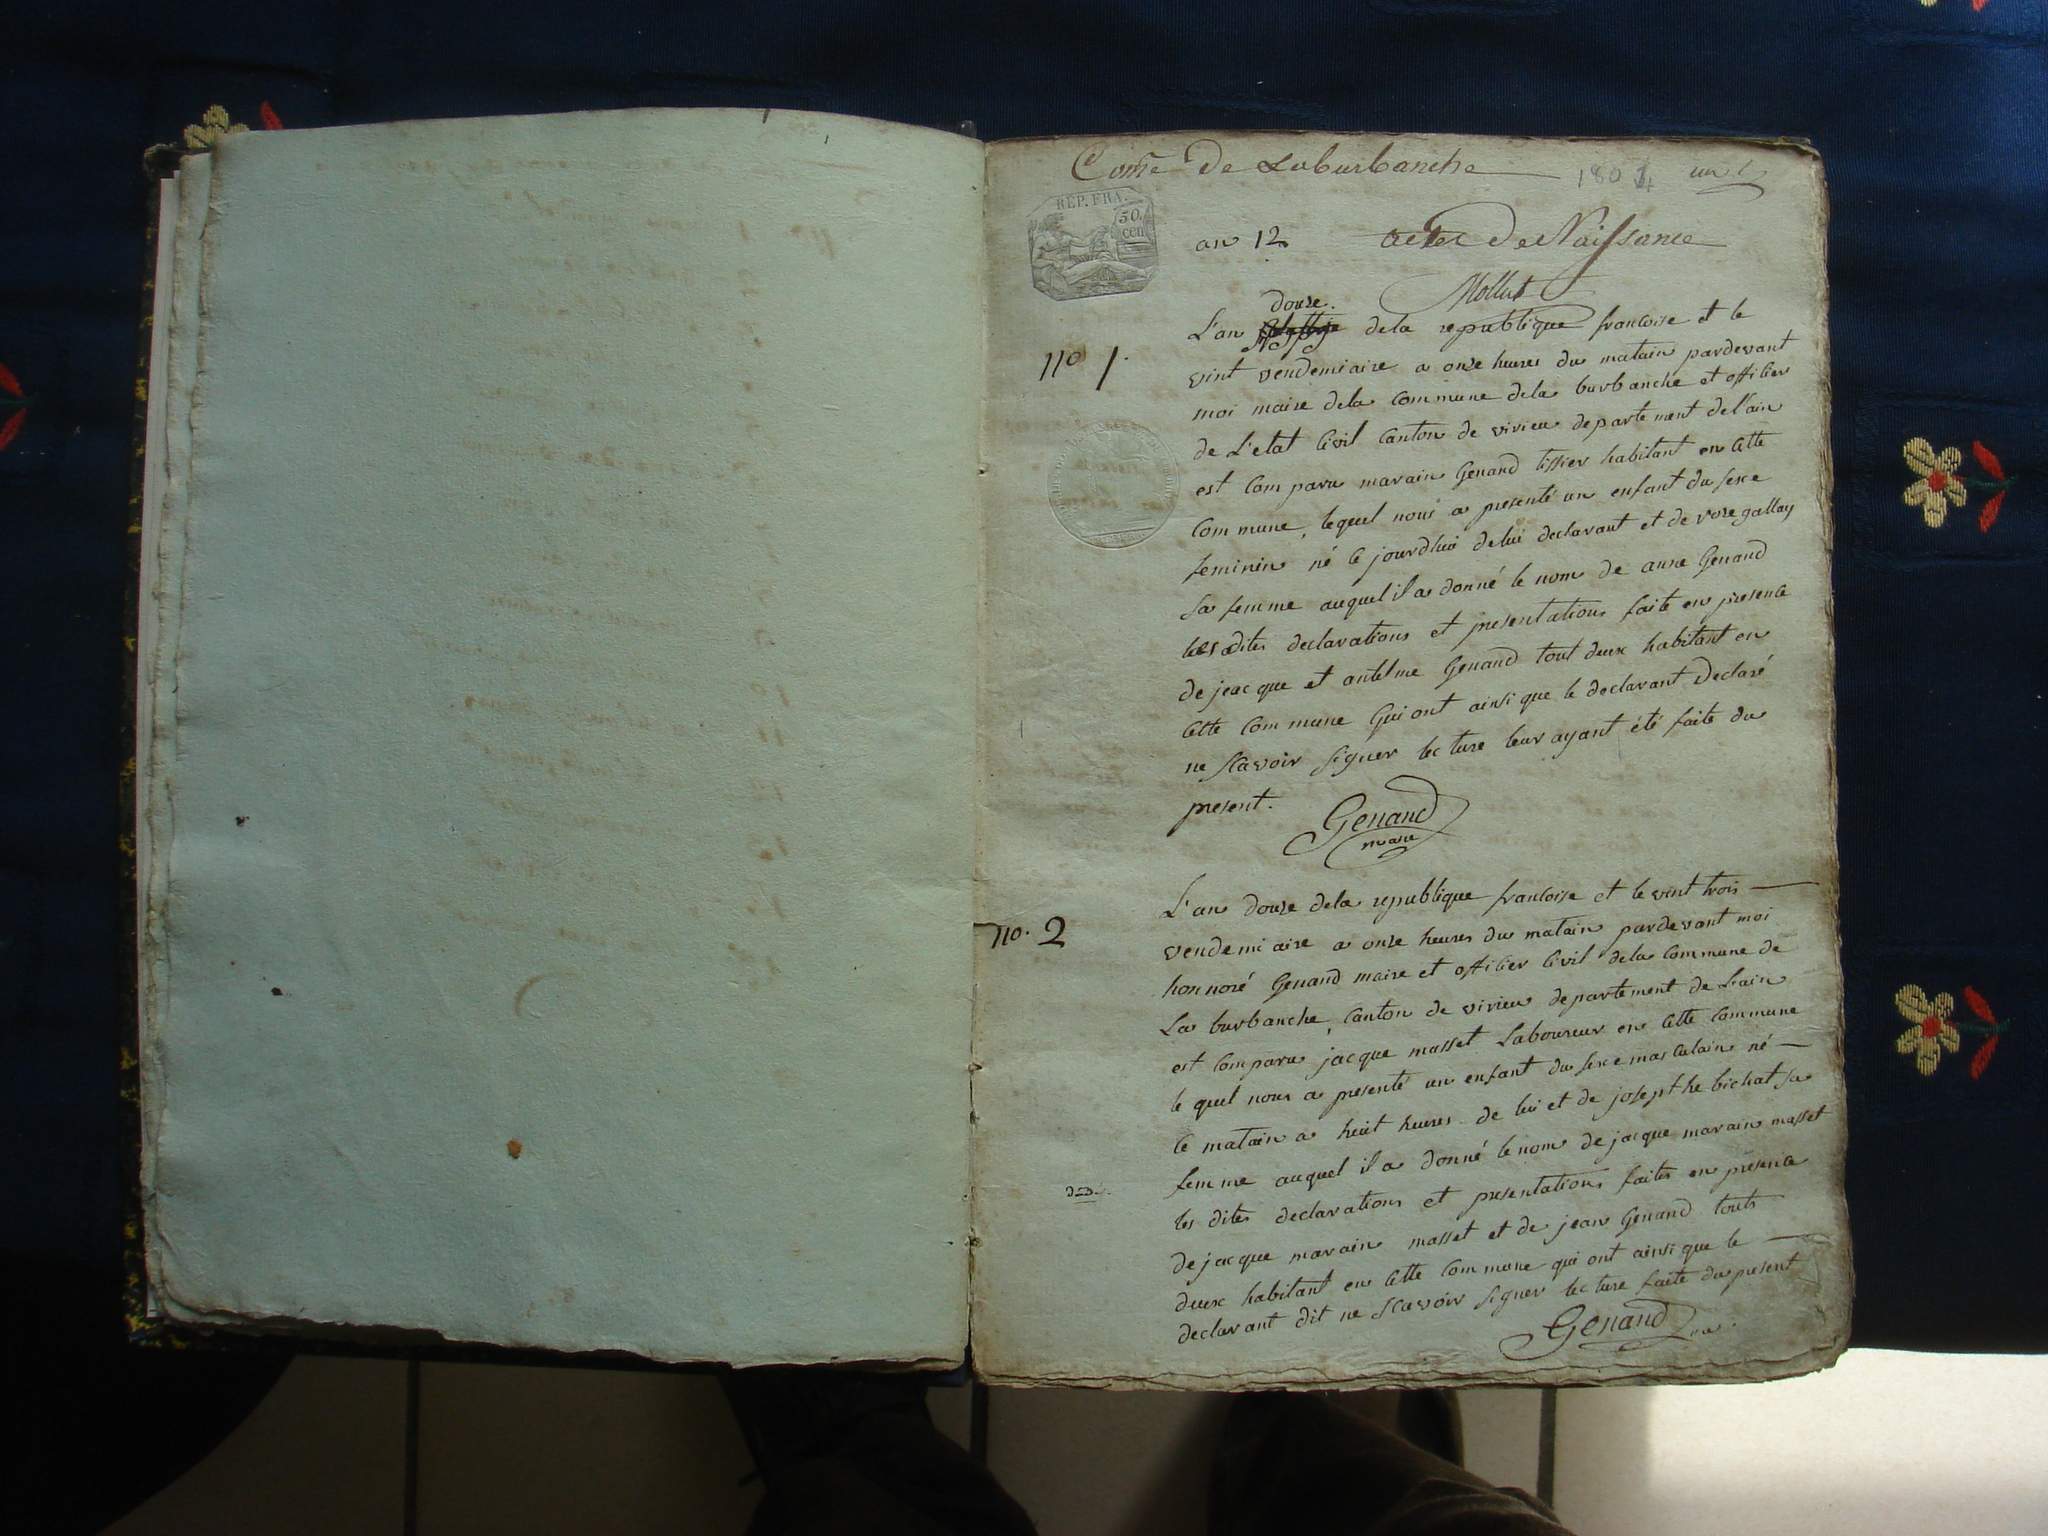 Comne De Laburbanche 1804 un
REP. FRA.
50.
cen
an 12 actes de Naissance
Mollet
douze.
L'an de la republique francoise et le
vint vendemiaire a onze heures du matain pardevant
moi maire dela commune dela burbanche et offitier
de L'etat Civil canton de virieu departement de l'ain
est Comparu marain Genand tissier habitant en cette
commune, lequel nous a presenté un enfant du sexe
feminin né ce jourdhui delui declarant et de roze gallay
sa femme auquel il a donné le nom de anne Genand
lesdites declarations et presentations faite en presence
de jeacque et antelme Genand tout deux habitant en
cette commune Qui ont ainsi que le declarant Declaré
ne scavoir signer lecture leur ayant été faite du
present.
no 1.
Genand
maire
L'an douze dela republique francoise et le vint trois
vendemiaire a onze heures du matain pardevant moi
honnoré Genand maire et offitier Civil dela commune de
La burbanche, canton de virieu departement de L'ain
est comparu jacque masset Laboureur en cette commune
le quel nous a presenté un enfant du sexe masculain né
ce matain a heuit heures de lui et de josepthe bichat sa
femme auquel il a donné le nom de jacque marain masset
les dites declarations et presentations faites en presence
de jacque marain masset et de jean Genand touts
deux habitant en cette commune qui ont ainsi que le
declarant dit ne scavoir signer lecture faite du present
no. 2
Genand